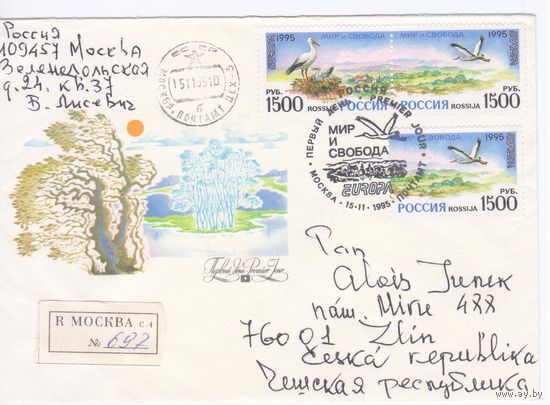 Россия
109457 Москва
Зеленодольская
д.24. кв.37
В. Лисевич
СССР
МОСКВА-ПОЧТАМТ ЦЕХ-5
б
1995
МИР И СВОБОДА
EUROPA
РУБ.
1500
ROSSIJA
РОССИЯ
РУБ.
1500
ROSSIJA
МИР И СВОБОДА
1995
EUROPA
РОССИЯ
ROSSIJA
РУБ.
1500
РОССИЯ
ПЕРВЫЙ ДЕНЬ • PREMIER JOUR
МИР
И
СВОБОДА
EUROPA
МОСКВА • 15-11-1995 • ПОЧТАМТ
Первый день Premier Jour
R МОСКВА с 4
№ 697
Pan
Alois
nám. Míru 488
76001 Zlín
Česká republika
Чешская республика
www.ay.by